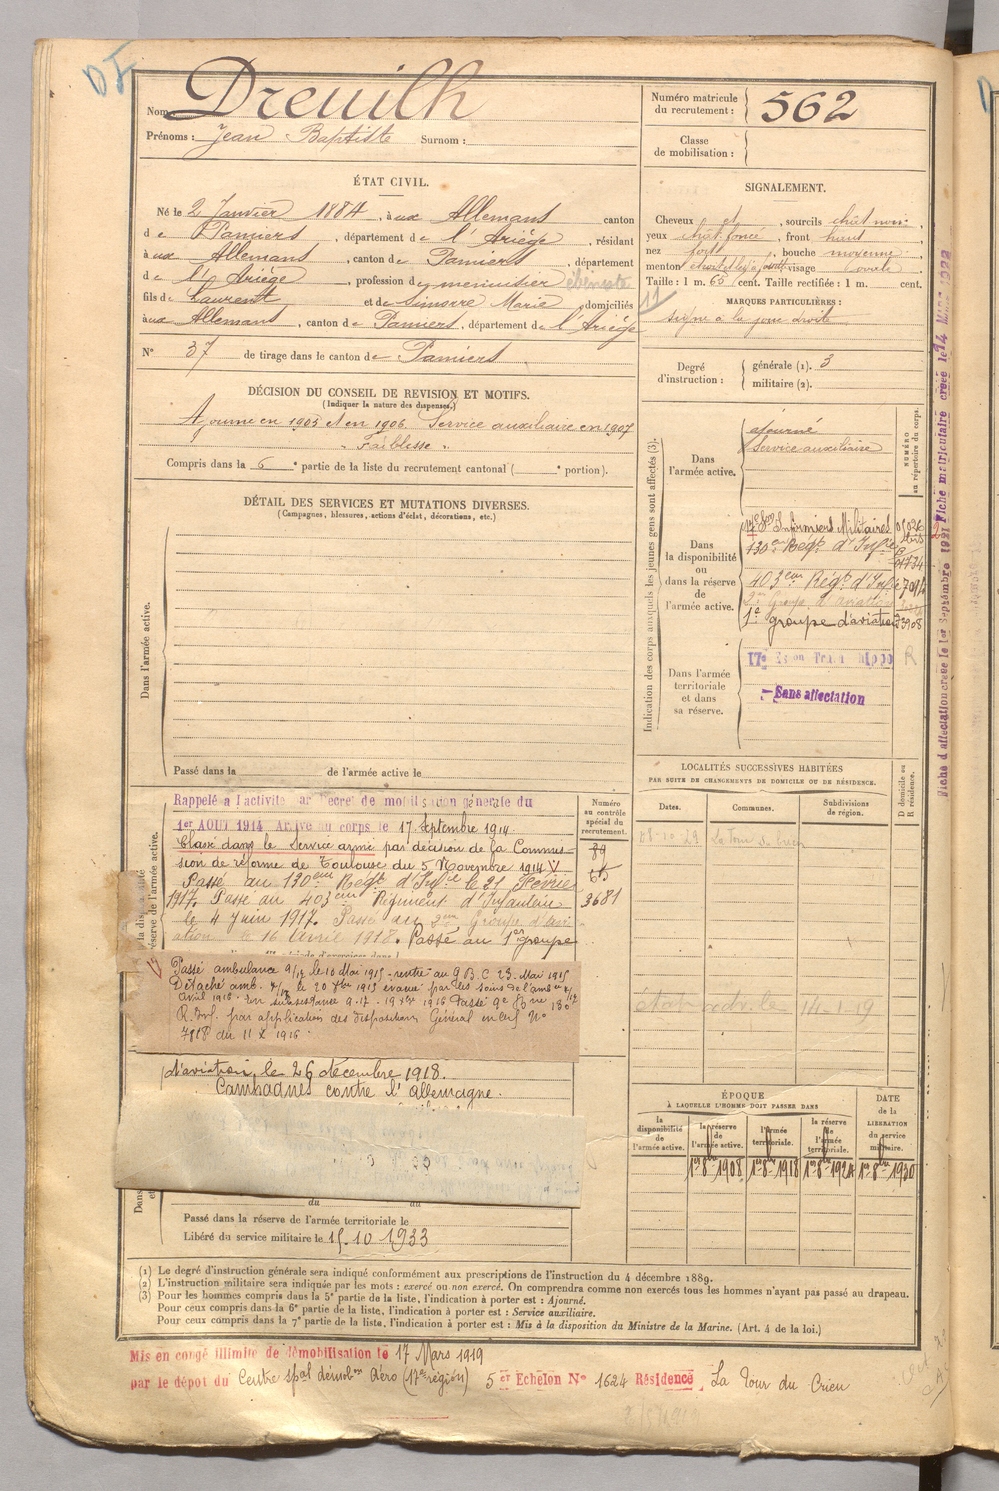 Nom: Dreuilh
Prénoms: Jean Baptiste Surnom:
ÉTAT CIVIL.
Né le 2 Janvier 1884, à aux Allemans canton
de Pamiers, département de l'Ariège, résidant
à aux Allemans, canton de Pamiers, département
de l'Ariège, profession de menuisier ébéniste
fils de Laurent et de Simorre Marie, domiciliés
à aux Allemans, canton de Pamiers, département de l'Ariège
N° 37 de tirage dans le canton de Pamiers
DÉCISION DU CONSEIL DE REVISION ET MOTIFS.
(Indiquer la nature des dispenses.)
Ajourné en 1905 et en 1906. Service auxiliaire en 1907
"Faiblesse".
Compris dans la 6e partie de la liste du recrutement cantonal ( e portion).
DÉTAIL DES SERVICES ET MUTATIONS DIVERSES.
(Campagnes, blessures, actions d'éclat, décorations, etc.)
Dans l'armée active.
Passé dans la de l'armée active le
Rappelé à l'activité par Décret de mobilisation générale du
1er AOUT 1914 Arrivé au corps le 17 Septembre 1914
Classé dans le Service armé par décision de la Commis-
sion de réforme de Toulouse du 5 Novembre 1914
Passé au 130eme Régt d'Infie le 21 Février
1917. Passé au 403eme Régiment d'Infanterie
le 4 Juin 1917. Passé au 2me Groupe d'avi-
ation le 16 Avril 1918. Passé au 1er groupe
Passé ambulance 9/17 le 10 Mai 1915 - rentré au G.B.C. 23 Mai 1915
Détaché amb. 4/17 le 20 1915 évacué par les soins de l'amb
Avril 1916. En subsistance 9.17. 19 1916 Passé
R. Inf. par application des dispositions Général en chef N°
7818 du 11 X 1916
d'aviation, le 26 décembre 1918.
Campagnes contre l'allemagne.
Numéro au contrôle spécial du recrutement.
89
3681
du au
Passé dans la réserve de l'armée territoriale le
Libéré du service militaire le 15.10.1933
Numéro matricule du recrutement: 562
Classe de mobilisation:
SIGNALEMENT.
Cheveux et, sourcils chât noirs,
yeux chât foncé, front haut,
nez fort, bouche moyenne,
menton visage ovale
Taille: 1 m. 65 cent. Taille rectifiée: 1 m. cent.
MARQUES PARTICULIÈRES:
signe à la joue droite
Degré d'instruction: générale (1). 3
militaire (2).
Indication des corps auxquels les jeunes gens sont affectés (3).
NUMÉRO au répertoire du corps.
Dans l'armée active.
Ajourné
Service auxiliaire
Dans la disponibilité ou dans la réserve de l'armée active.
Infirmiers Militaires
130eme Régt d'Infie
403eme Régt d'Infie
2me Groupe d'aviation
1er groupe d'aviation
Dans l'armée territoriale et dans sa réserve.
17e Escon Train hippo
R
Sans affectation
LOCALITÉS SUCCESSIVES HABITÉES
PAR SUITE DE CHANGEMENTS DE DOMICILE OU DE RÉSIDENCE.
Dates. Communes. Subdivisions de région. D domicile ou R résidence.
La Tour du Crieu
14-1-19
ÉPOQUE
À LAQUELLE L'HOMME DOIT PASSER DANS
la disponibilité de l'armée active. la réserve de l'armée active. l'armée territoriale. la réserve de l'armée territoriale.
DATE de la LIBÉRATION du service militaire.
1er 8bre 1908 1er 8bre 1918 1er 8bre 1924 1er 8bre 1930
(1) Le degré d'instruction générale sera indiqué conformément aux prescriptions de l'instruction du 4 décembre 1889.
(2) L'instruction militaire sera indiquée par les mots: exercé ou non exercé. On comprendra comme non exercés tous les hommes n'ayant pas passé au drapeau.
(3) Pour les hommes compris dans la 5e partie de la liste, l'indication à porter est: Ajourné.
Pour ceux compris dans la 6e partie de la liste, l'indication à porter est: Service auxiliaire.
Pour ceux compris dans la 7e partie de la liste, l'indication à porter est: Mis à la disposition du Ministre de la Marine. (Art. 4 de la loi.)
Mis en congé illimité de démobilisation le 17 Mars 1919
par le dépôt du Centre spal démobon Aéro (17e région) 5 er Echelon N° 1624 Résidence La Tour du Crieu
Fiche d'affectation créée le 1er Septembre 1921 Fiche matriculaire créée le